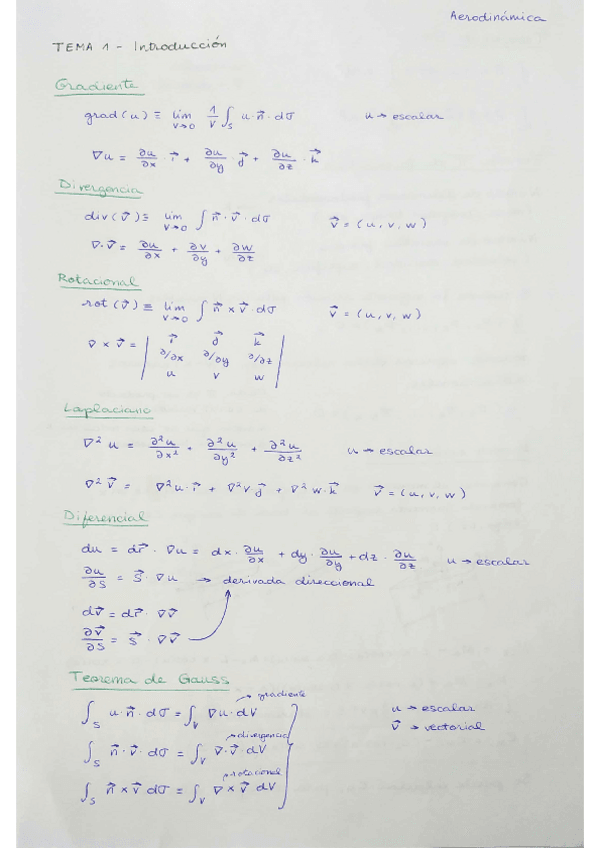 Aerodinámica
TEMA 1 - Introducción
Gradiente
grad(u) ≡ lim V→0 1/V ∫_S u·n⃗·dσ    u → escalar
∇u = ∂u/∂x·i⃗ + ∂u/∂y·j⃗ + ∂u/∂z·k⃗
Divergencia
div(v⃗) ≡ lim V→0 ∫ n⃗·v⃗·dσ    v⃗ = (u, v, w)
∇·v⃗ = ∂u/∂x + ∂v/∂y + ∂w/∂z
Rotacional
rot(v⃗) ≡ lim V→0 ∫ n⃗×v⃗·dσ    v⃗ = (u, v, w)
∇×v⃗ = | i⃗ j⃗ k⃗
∂/∂x ∂/∂y ∂/∂z
u v w |
Laplaciano
∇²u = ∂²u/∂x² + ∂²u/∂y² + ∂²u/∂z²    u → escalar
∇²v⃗ = ∇²u·i⃗ + ∇²v j⃗ + ∇²w·k⃗    v⃗ = (u, v, w)
Diferencial
du = dr⃗·∇u = dx·∂u/∂x + dy·∂u/∂y + dz·∂u/∂z    u → escalar
∂u/∂s = s⃗·∇u → derivada direccional
dv⃗ = dr⃗·∇v⃗
∂v⃗/∂s = s⃗·∇v⃗
Teorema de Gauss
→ gradiente
∫_S u·n⃗·dσ = ∫_V ∇u·dV    u → escalar
v⃗ → vectorial
→ divergencia
∫_S n⃗·v⃗·dσ = ∫_V ∇·v⃗ dV
rotacional
∫_S n⃗×v⃗ dσ = ∫_V ∇×v⃗ dV